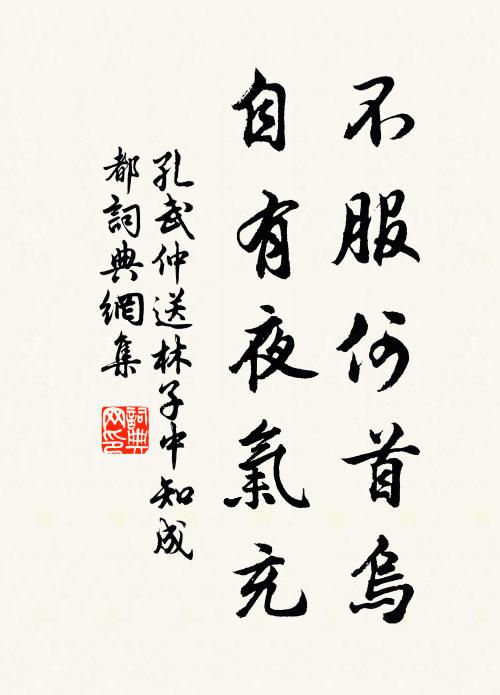 不服何首烏
自有夜氣充
孔武仲送林子中知成
都詞典網集
詞典
网印